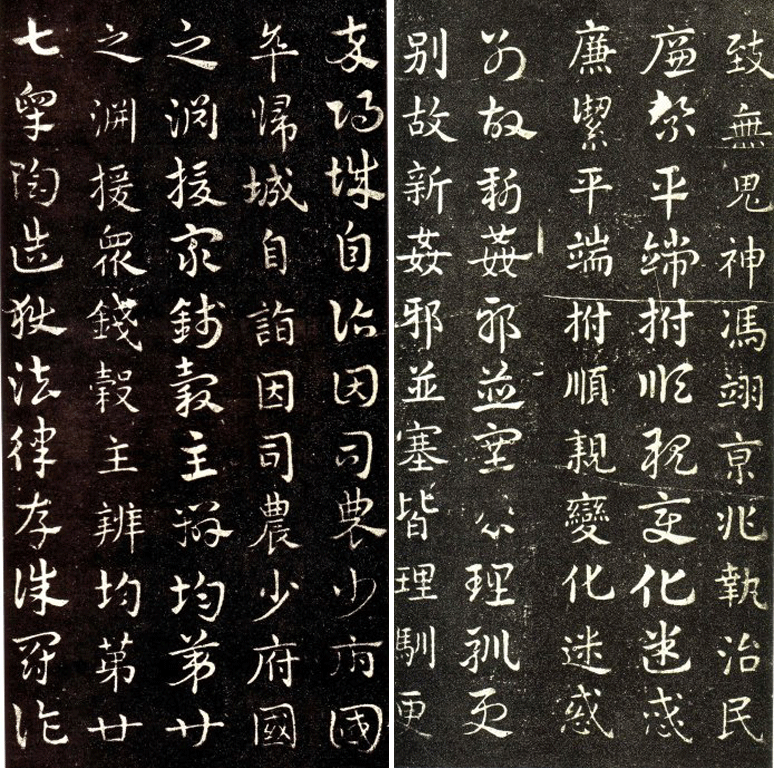 致無鬼神馮翊京兆執治民
廉絜平端拊順親變化迷惑
廉絜平端拊順親變化迷惑
別故新姦邪並塞皆理馴更
別故新姦邪並塞皆理馴更
卒歸城自詣因司農少府國
卒歸城自詣因司農少府國
之淵援衆錢穀主辨均第廿
之淵援衆錢穀主辨均第廿
七皋陶造獄法律存誅罰詐